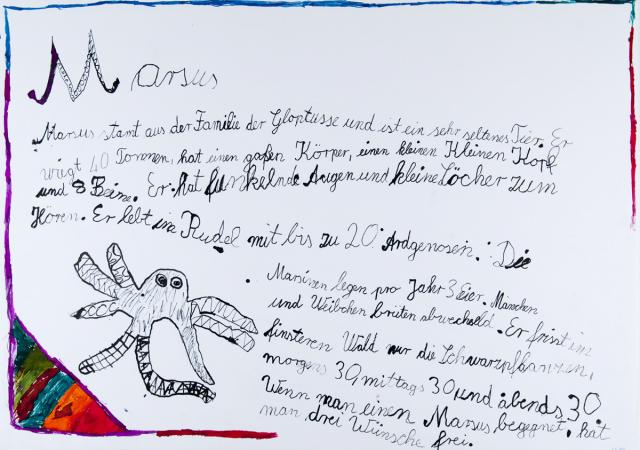 Marsus
Marsus stamt aus der Familie der Gloptusse und ist ein sehr seltenes Tier. Er
wiegt 40 Tonnen, hat einen goßen Körper, einen kleinen Kleinen Kopf
und 8 Beine. Er hat funkelnde Augen und kleine Löcher zum
Hören. Er lebt im Rudel mit bis zu 20 Ardgenosen. Die
Marsinen legen pro Jahr 3 Eier. Mänchen
und Weibchen brüten abwechelld. Er frisst im
finsteren Wald nur die Schwarzpflanzen,
morgens 30, mittags 30 und abends 30.
Wenn man einen Marsus begegnet, hat
man drei Wünsche frei.